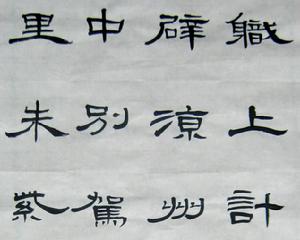 職上計
辟涼州
中別駕
里朱紫